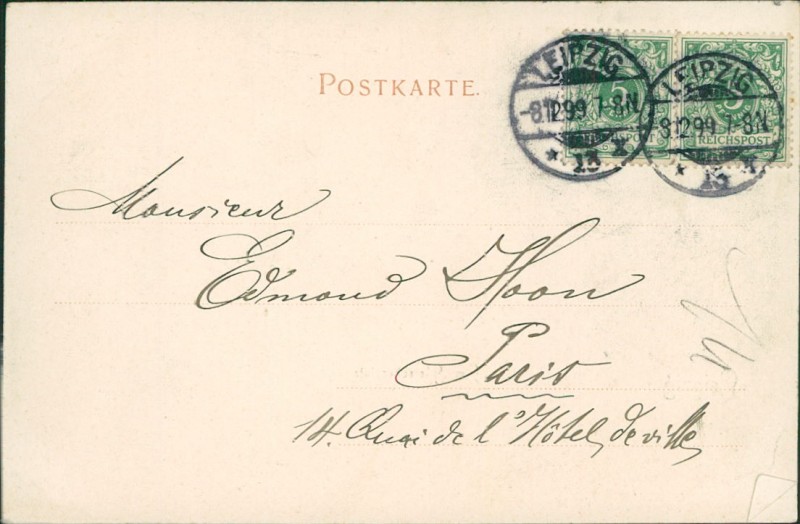 POSTKARTE.
LEIPZIG
-8.12.99. 7-8N
* 13 X
LEIPZIG
8.12.99. 7-8N
* 13 X
5
REICHSPOST
REICHSPOST
Monsieur
Edmond Hoon
Paris
14. Quai de l'Hôtel de ville